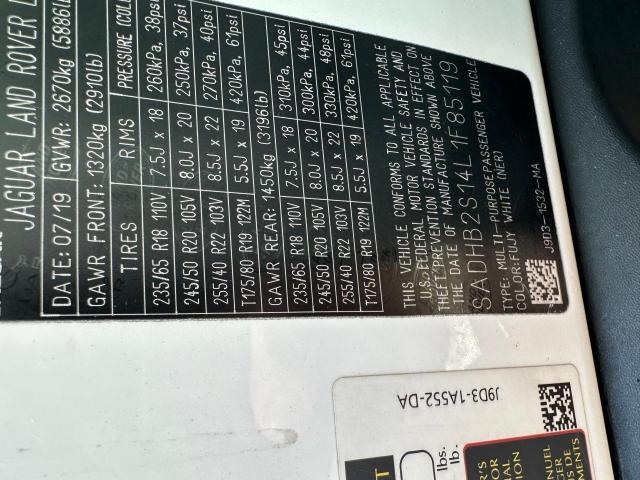 JAGUAR LAND ROVER
DATE: 07/19 GVWR: 2670kg (5886l
GAWR FRONT: 1320kg (2910lb)
TIRES RIMS PRESSURE (COL
235/65 R18 110V 7.5J x 18 260kPa, 38psi
245/50 R20 105V 8.0J x 20 250kPa, 37psi
255/40 R22 103V 8.5J x 22 270kPa, 40psi
T175/80 R19 122M 5.5J x 19 420kPa, 61psi
GAWR REAR: 1450kg (3196lb)
235/65 R18 110V 7.5J x 18 310kPa, 45psi
245/50 R20 105V 8.0J x 20 300kPa, 44psi
255/40 R22 103V 8.5J x 22 330kPa, 48psi
T175/80 R19 122M 5.5J x 19 420kPa, 61psi
THIS VEHICLE CONFORMS TO ALL APPLICABLE
U.S. FEDERAL MOTOR VEHICLE SAFETY AND
THEFT PREVENTION STANDARDS IN EFFECT ON
THE DATE OF MANUFACTURE SHOWN ABOVE
SADHB2S14L1F85119
TYPE: MULTI-PURPOSE PASSENGER VEHICLE
COLOR: FUJI WHITE (NER)
J9D3-1532-MA
J9D3-1A552-DA
T
lbs.
lb.
R'S
OR
AL
ION
NUEL
GER
S DE
MENTS